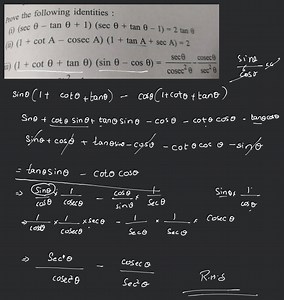 Prove the following identities :
(i) (sec θ – tan θ + 1) (sec θ + tan θ – 1) = 2 tan θ
(ii) (1 + cot A – cosec A) (1 + tan A + sec A) = 2
(iii) (1 + cot θ + tan θ) (sin θ – cos θ) = secθ/cosec²θ – cosecθ/sec²θ
sinθ/cosθ
sinθ(1 + cotθ + tanθ) – cosθ(1+cotθ+tanθ)
Sinθ + cotθ sinθ + tanθ sinθ – cosθ – cotθ cosθ – tanθ cosθ
Sinθ + cosθ + tanθ sinθ – cosθ – cotθ cosθ – sinθ
= tanθ sinθ – cotθ cosθ
⇒ Sinθ/cosθ × 1/cosecθ – cosθ/sinθ × 1/Secθ
Sinθ × 1/cosθ
⇒ 1/cosecθ × 1/cosecθ × secθ – 1/Secθ × 1/Secθ × Cosecθ
⇒ Secθ/cosec²θ – cosecθ/Sec²θ
R.H.S